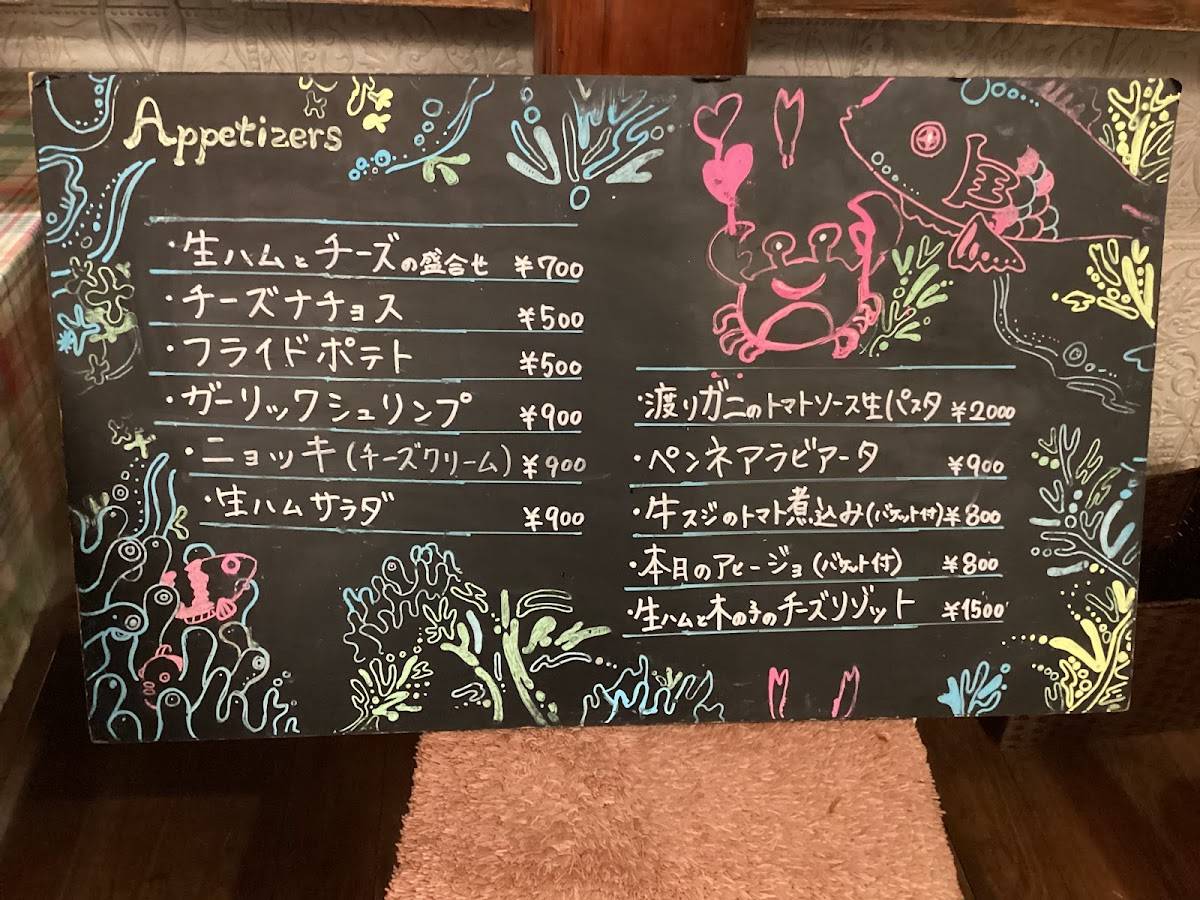 Appetizers
・生ハムとチーズの盛合せ ¥700
・チーズナチョス ¥500
・フライドポテト ¥500
・ガーリックシュリンプ ¥900
・ニョッキ(チーズクリーム) ¥900
・生ハムサラダ ¥900
・渡りガニのトマトソース生パスタ ¥2000
・ペンネアラビアータ ¥900
・牛スジのトマト煮込み(バケット付) ¥800
・本日のアヒージョ(バケット付) ¥800
・生ハムと木の子のチーズリゾット ¥1500